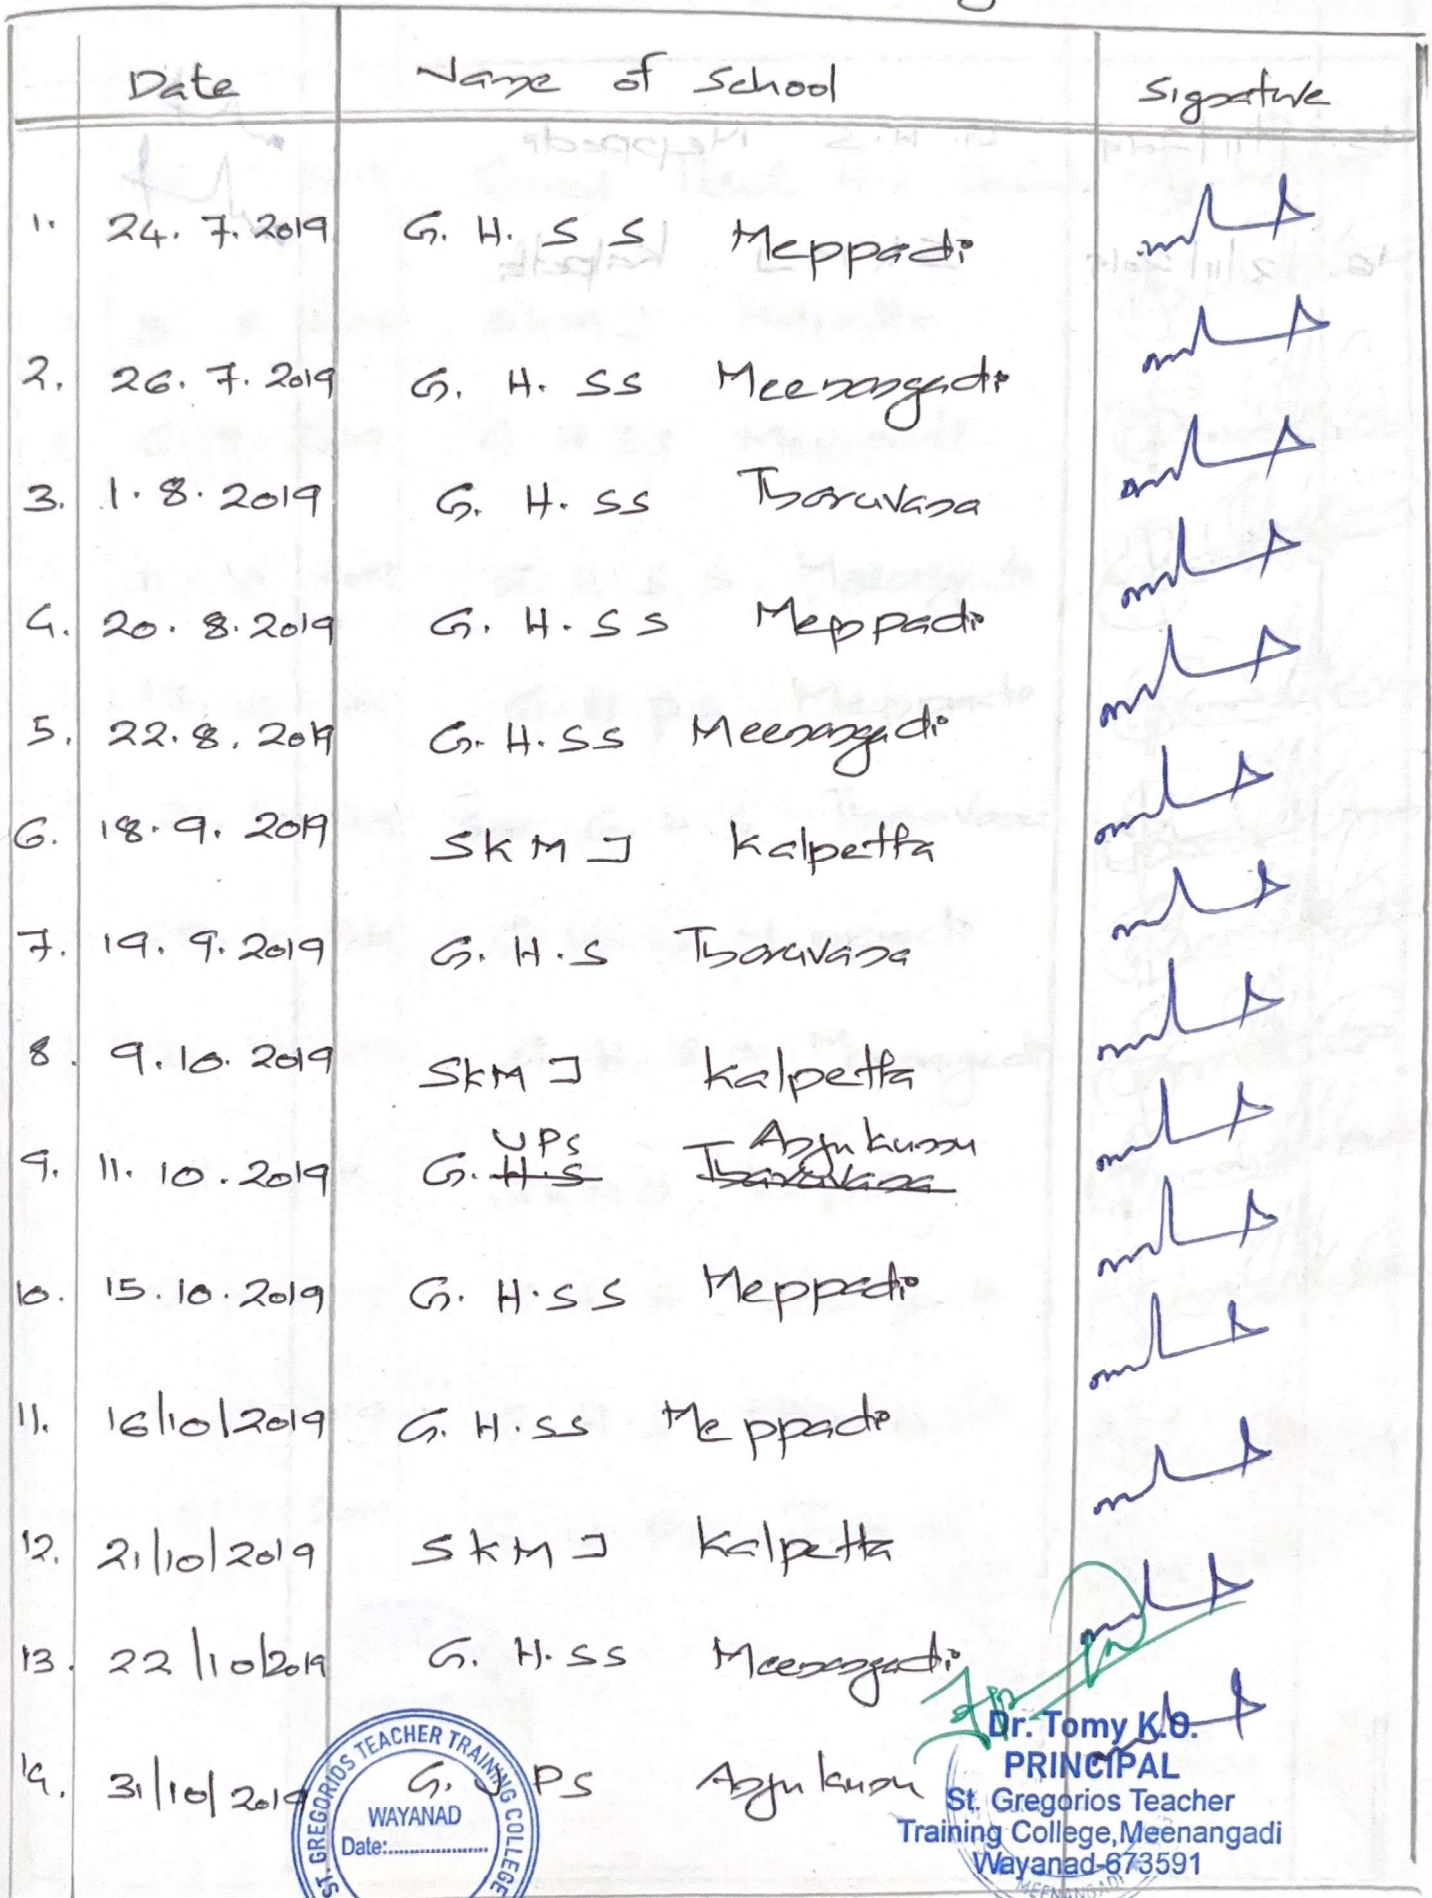 Date Name of School Signature
1. 24. 7. 2019 G. H. S S Meppadi
2. 26. 7. 2019 G. H. SS Meenangadi
3. 1. 8. 2019 G. H. SS Tharuvana
4. 20. 8. 2019 G. H. SS Meppadi
5. 22. 8. 2019 G. H. SS Meenangadi
6. 18. 9. 2019 SKMJ Kalpetta
7. 19. 9. 2019 G. H. S Tharuvana
8. 9. 10. 2019 SKMJ Kalpetta
UPS Anjukunnu
9. 11. 10. 2019 G. H. S Tharuvana
10. 15. 10. 2019 G. H. SS Meppadi
11. 16/10/2019 G. H. SS Meppadi
12. 21/10/2019 SKMJ Kalpetta
13. 22/10/2019 G. H. SS Meenangadi
14. 31/10/2019 G. U PS Anjukunnu
ST. GREGORIOS TEACHER TRAINING COLLEGE
WAYANAD
Date:....................
Dr. Tomy K.O.
PRINCIPAL
St. Gregorios Teacher
Training College, Meenangadi
Wayanad-673591
MEENANGADI